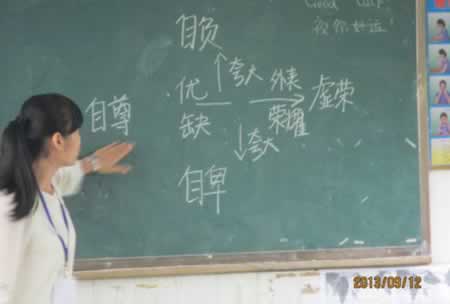 Good Luck!
祝你好运!
自负
夸大
优
外表
自尊
虚荣
缺
荣耀
夸大
自卑
2013/09/12